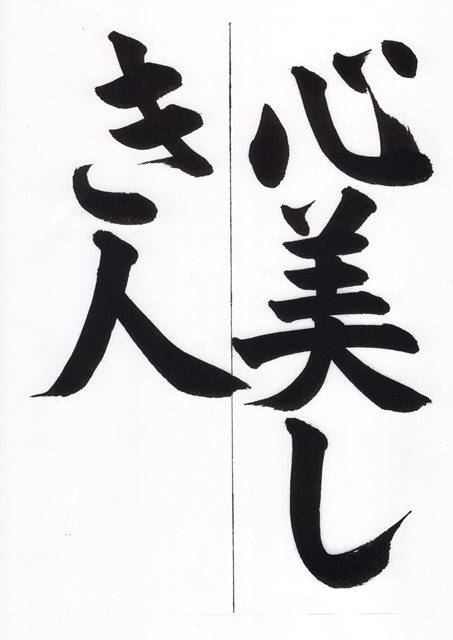 心美し
き人